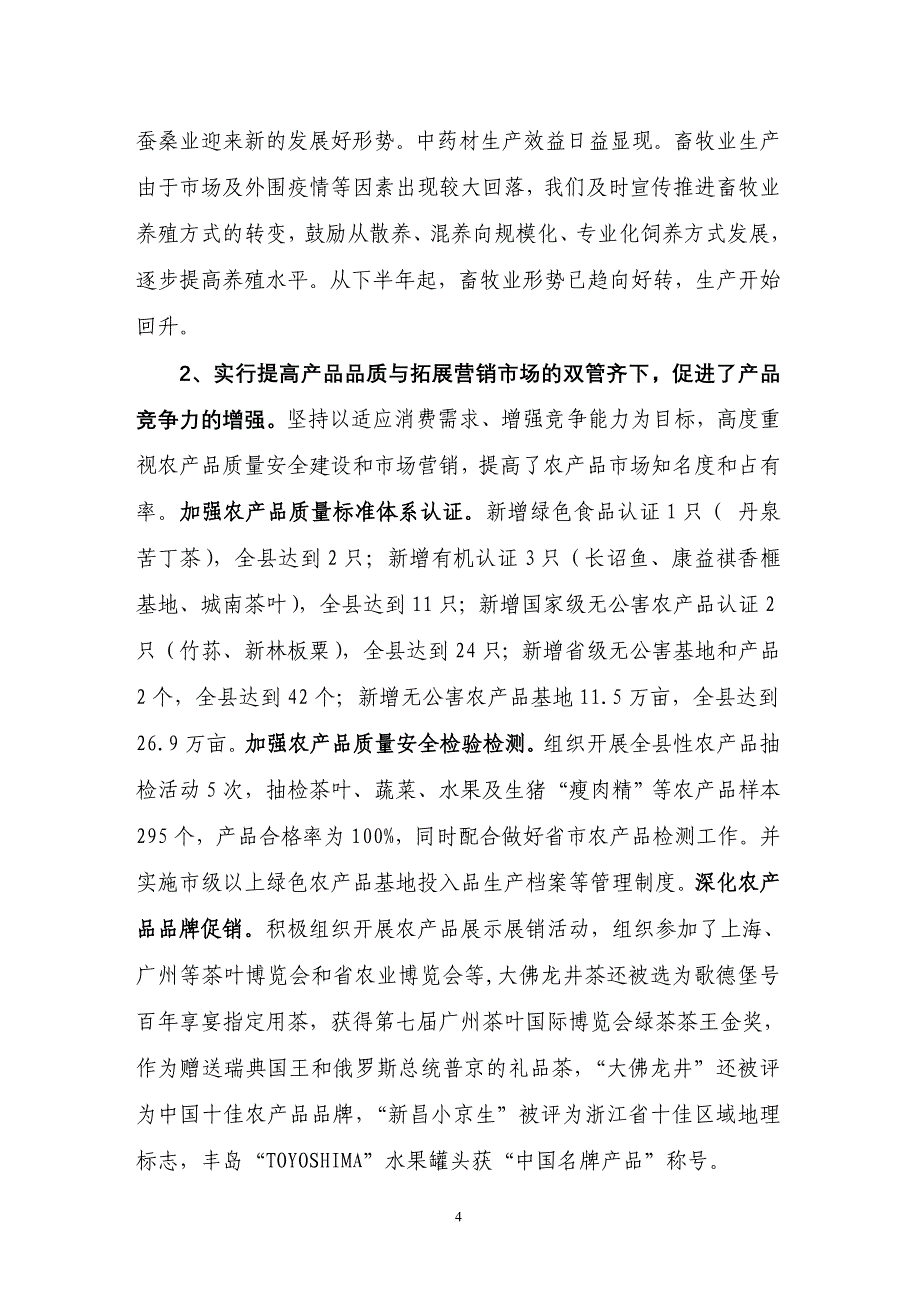 蚕桑业迎来新的发展好形势。中药材生产效益日益显现。畜牧业生产
由于市场及外围疫情等因素出现较大回落，我们及时宣传推进畜牧业
养殖方式的转变，鼓励从散养、混养向规模化、专业化饲养方式发展，
逐步提高养殖水平。从下半年起，畜牧业形势已趋向好转，生产开始
回升。
2、实行提高产品品质与拓展营销市场的双管齐下，促进了产品
竞争力的增强。坚持以适应消费需求、增强竞争能力为目标，高度重
视农产品质量安全建设和市场营销，提高了农产品市场知名度和占有
率。加强农产品质量标准体系认证。新增绿色食品认证 1 只（ 丹泉
苦丁茶），全县达到 2 只；新增有机认证 3 只（长诏鱼、康益祺香榧
基地、城南茶叶），全县达到 11 只；新增国家级无公害农产品认证 2
只（竹荪、新林板粟），全县达到 24 只；新增省级无公害基地和产品
2 个，全县达到 42 个；新增无公害农产品基地 11.5 万亩，全县达到
26.9 万亩。加强农产品质量安全检验检测。组织开展全县性农产品抽
检活动 5 次，抽检茶叶、蔬菜、水果及生猪“瘦肉精”等农产品样本
295 个，产品合格率为 100%，同时配合做好省市农产品检测工作。并
实施市级以上绿色农产品基地投入品生产档案等管理制度。深化农产
品品牌促销。积极组织开展农产品展示展销活动，组织参加了上海、
广州等茶叶博览会和省农业博览会等,大佛龙井茶还被选为歌德堡号
百年享宴指定用茶，获得第七届广州茶叶国际博览会绿茶茶王金奖，
作为赠送瑞典国王和俄罗斯总统普京的礼品茶，“大佛龙井”还被评
为中国十佳农产品品牌，“新昌小京生”被评为浙江省十佳区域地理
标志，丰岛“TOYOSHIMA”水果罐头获“中国名牌产品”称号。
4